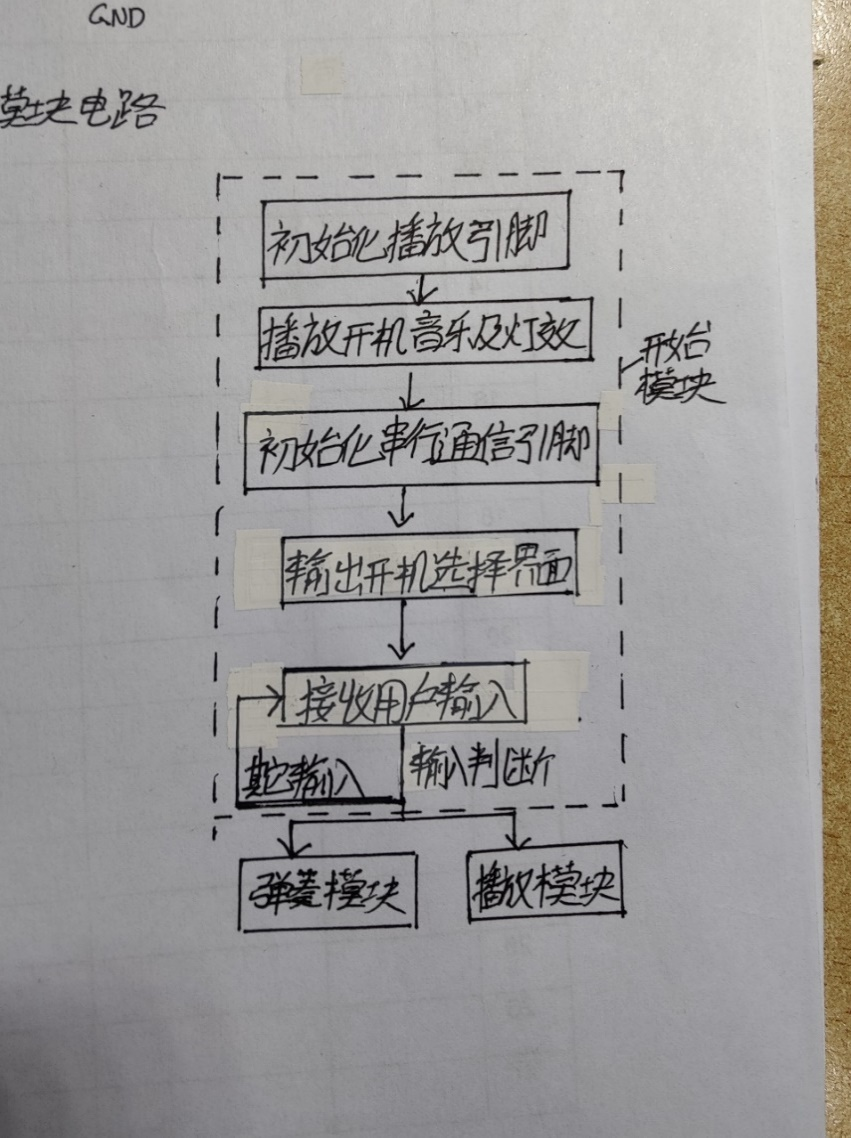 GND
模块电路
初始化播放引脚
播放开机音乐及灯效
开始
模块
初始化串行通信引脚
输出开机选择界面
接收用户输入
其它输入
输入判断
弹奏模块
播放模块